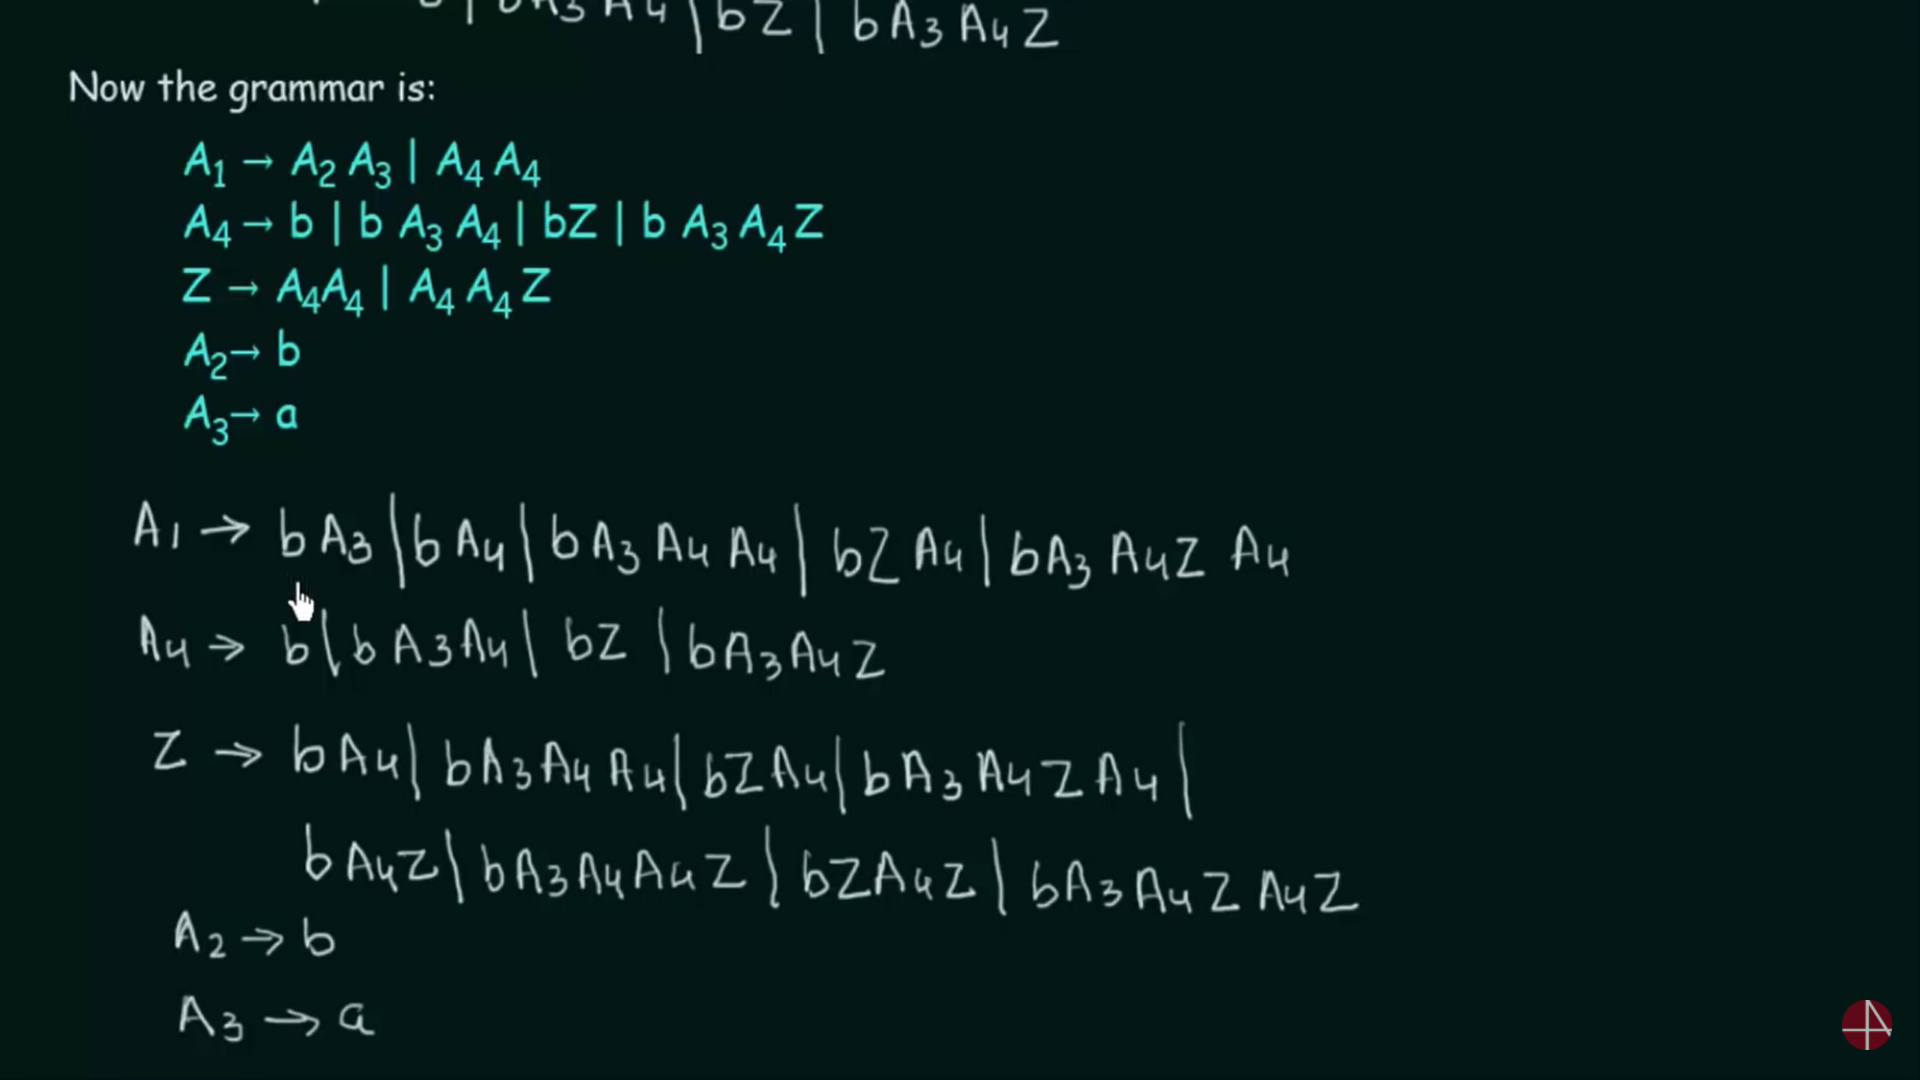 | bA₃A₄ | bZ | bA₃A₄Z
Now the grammar is:
A₁ → A₂ A₃ | A₄ A₄
A₄ → b | b A₃ A₄ | bZ | b A₃ A₄ Z
Z → A₄A₄ | A₄ A₄ Z
A₂ → b
A₃ → a
A₁ → bA₃ | bA₄ | bA₃A₄A₄ | bZA₄ | bA₃A₄ZA₄
A₄ → b | bA₃A₄ | bZ | bA₃A₄Z
Z → bA₄ | bA₃A₄A₄ | bZA₄ | bA₃A₄ZA₄ |
bA₄Z | bA₃A₄A₄Z | bZA₄Z | bA₃A₄ZA₄Z
A₂ → b
A₃ → a